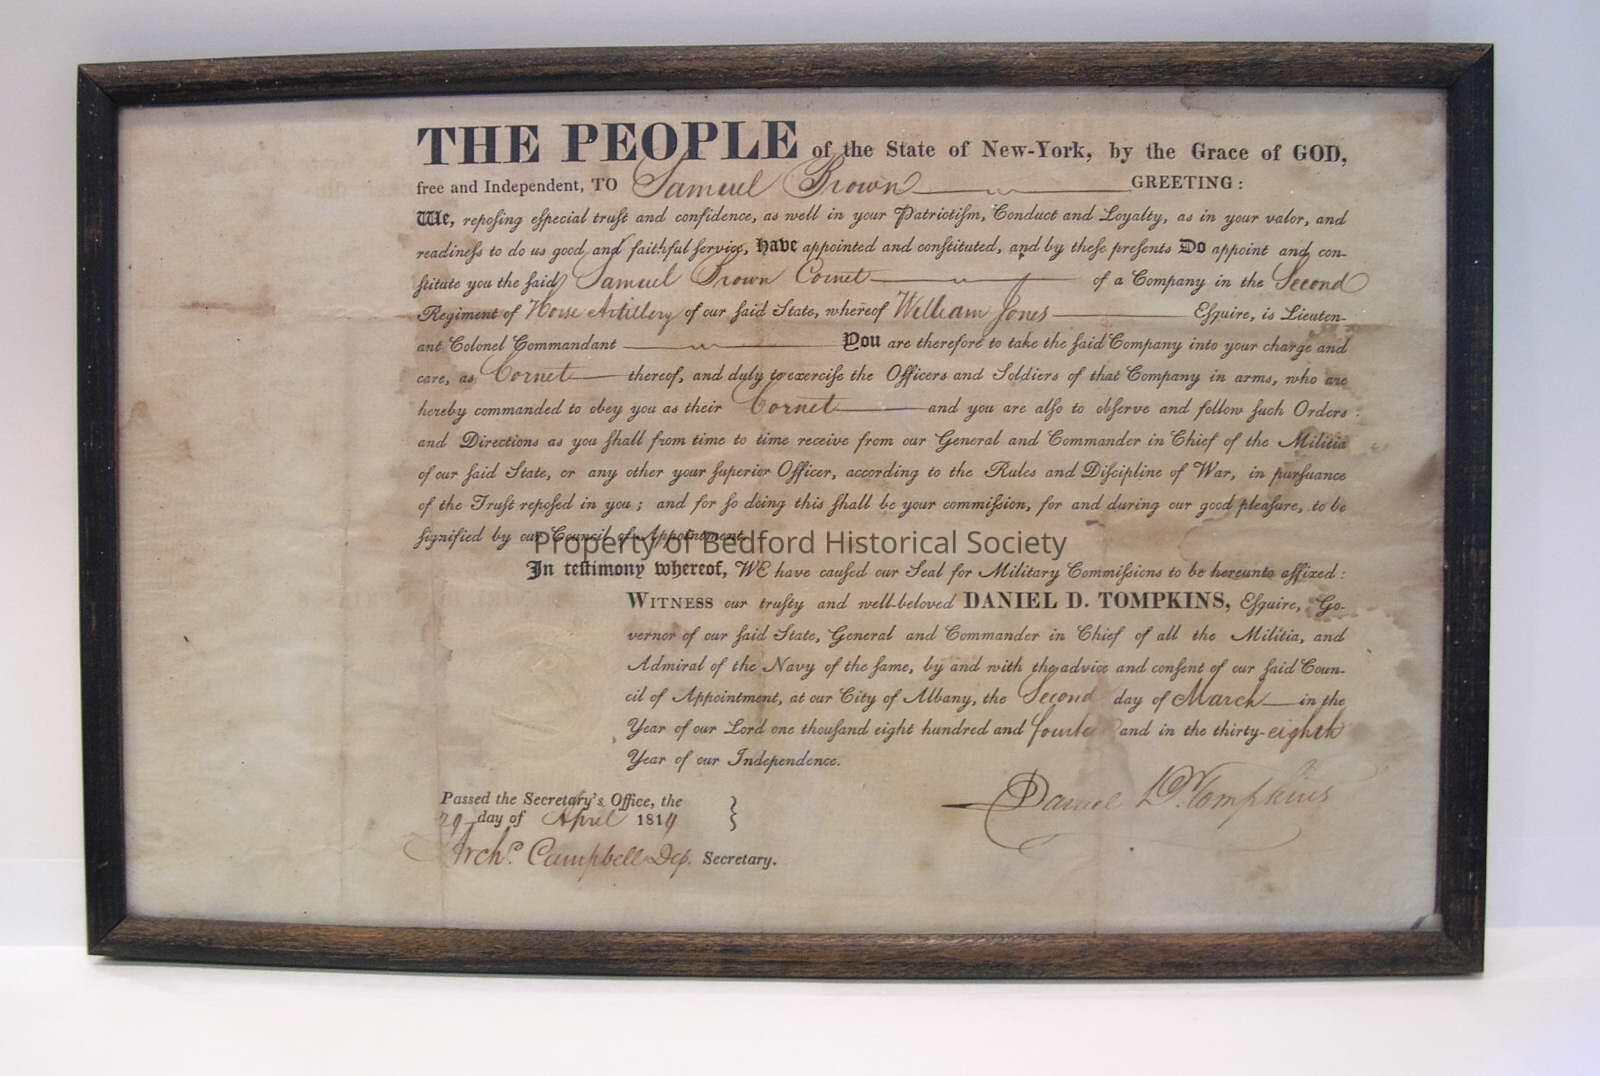 THE PEOPLE of the State of New-York, by the Grace of GOD,
free and Independent, TO Samuel Brown GREETING:
We, repoſing eſpecial truſt and confidence, as well in your Patriotiſm, Conduct and Loyalty, as in your valor, and
readineſs to do us good and faithful ſervice, Have appointed and conſtituted, and by theſe preſents Do appoint and con-
ſtitute you the ſaid Samuel Brown Cornet of a Company in the Second
Regiment of Horse Artillery of our ſaid State, whereof William Jones Eſquire, is Lieuten-
ant Colonel Commandant You are therefore to take the ſaid Company into your charge and
care, as Cornet thereof, and duly to exerciſe the Officers and Soldiers of that Company in arms, who are
hereby commanded to obey you as their Cornet and you are alſo to obſerve and follow ſuch Orders
and Directions as you ſhall from time to time receive from our General and Commander in Chief of the Militia
of our ſaid State, or any other your ſuperior Officer, according to the Rules and Diſcipline of War, in purſuance
of the Truſt repoſed in you; and for ſo doing this ſhall be your commiſſion, for and during our good pleaſure, to be
ſignified by our Council of Appointment.
Property of Bedford Historical Society
In teſtimony whereof, WE have cauſed our Seal for Military Commiſſions to be hereunto affixed:
WITNESS our truſty and well-beloved DANIEL D. TOMPKINS, Eſquire, Go-
vernor of our ſaid State, General and Commander in Chief of all the Militia, and
Admiral of the Navy of the ſame, by and with the advice and conſent of our ſaid Coun-
cil of Appointment, at our City of Albany, the Second day of March in the
Year of our Lord one thouſand eight hundred and and in the thirty-eighth
Year of our Independence.
Daniel D. Tompkins
Paſſed the Secretary's Office, the
29 day of April 1814
Archd. Campbell Dep. Secretary.